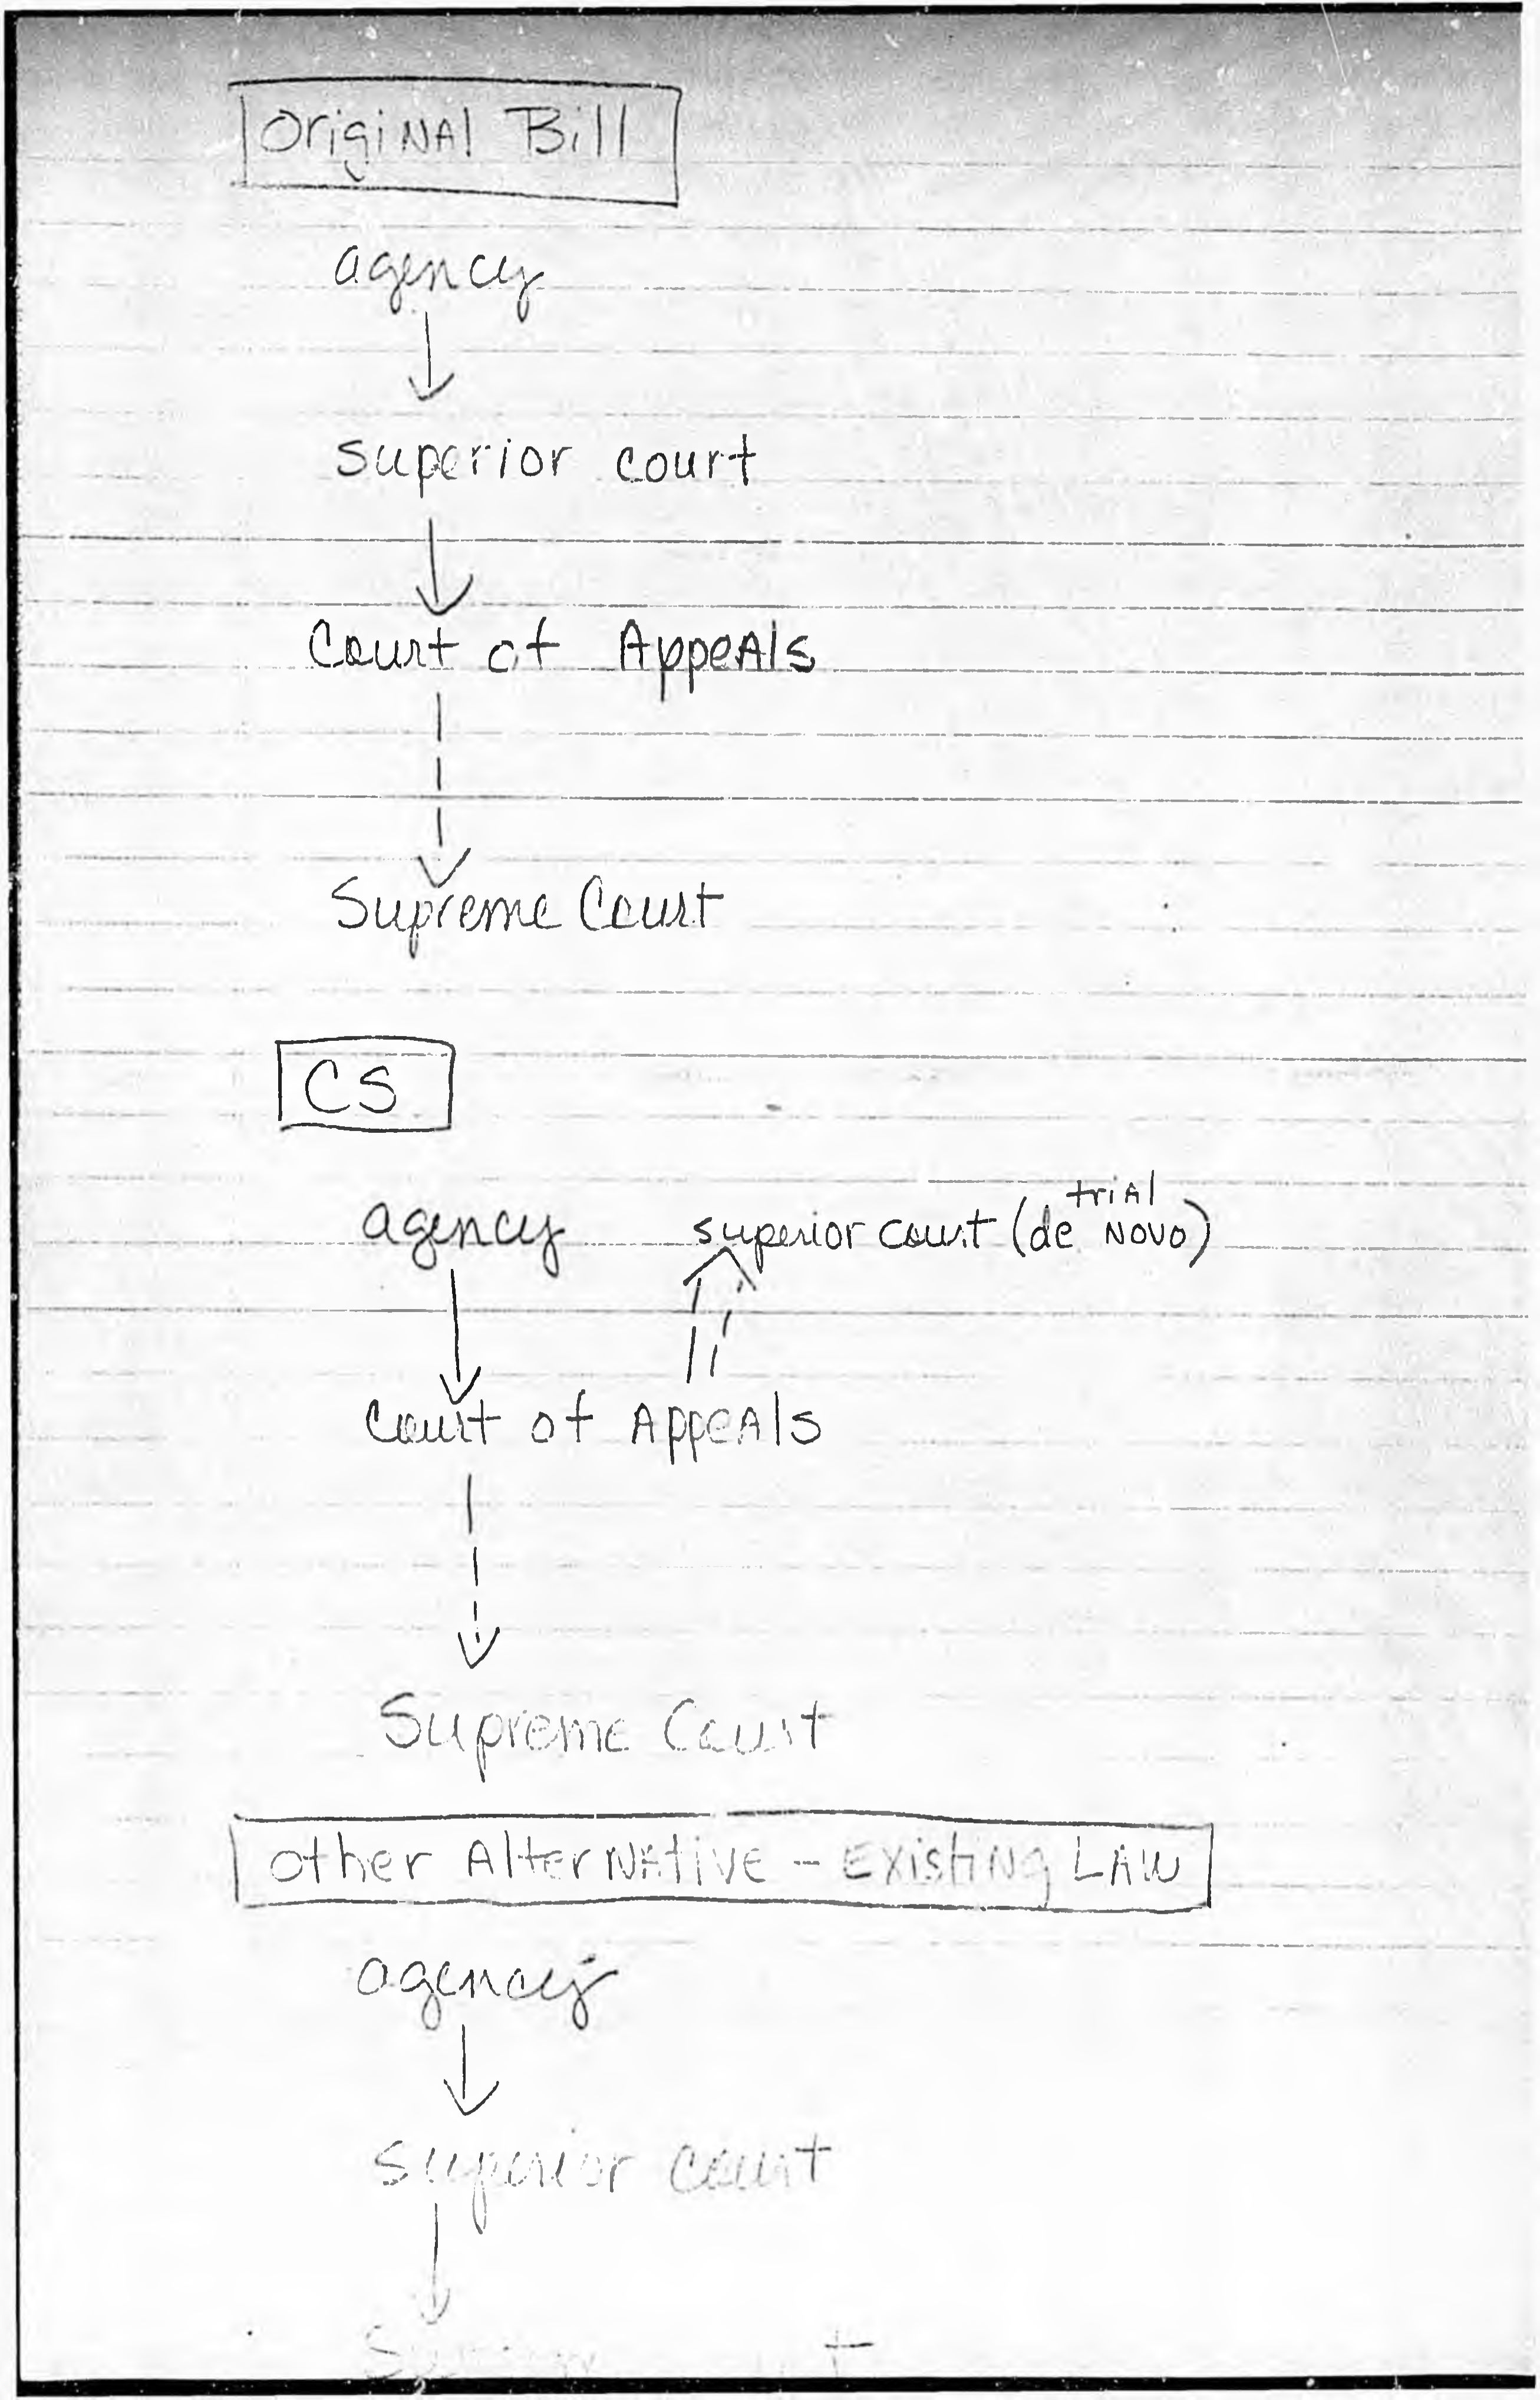 Original Bill
agency
superior court
Court of Appeals
Supreme Court
CS
trial
agency superior court (de novo)
Court of Appeals
Supreme Court
other Alternative - Existing Law
agency
superior court